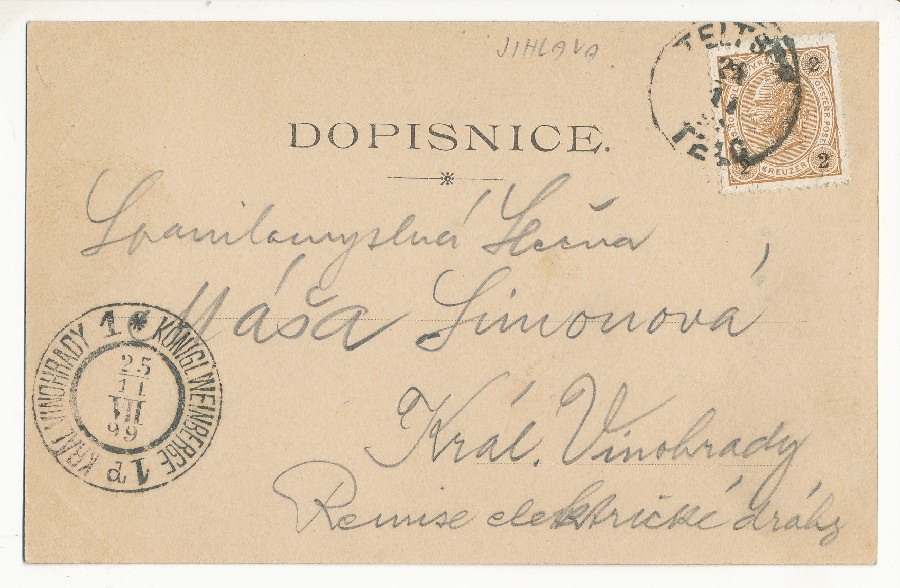 JIHLAVA
TELTSCH
TELČ
2 KREUZER 2
DOPISNICE.
Spanilomyslná Slečna
Máša Simonová
Král. Vinohrady
Remise elektrické dráhy
1 * KÖNIGL. WEINBERGE 1
KRÁL. VINOHRADY
25
11
VII
99